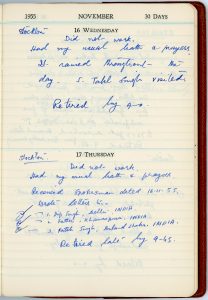 1955 NOVEMBER 30 DAYS
16 WEDNESDAY
Stockton
Did not work.
Had my usual bath & prayers
It rained throughout the
day. S. Tahl Singh visited.
Retired by 9-0.
17 THURSDAY
Stockton.
Did not work.
Had my usual bath & prayers
Received Spokesman dated 16-11-55.
Wrote letters to.
1. Singh, Delhi. INDIA
2. INDIA.
3. Singh, INDIA.
Retired late by 9-45.